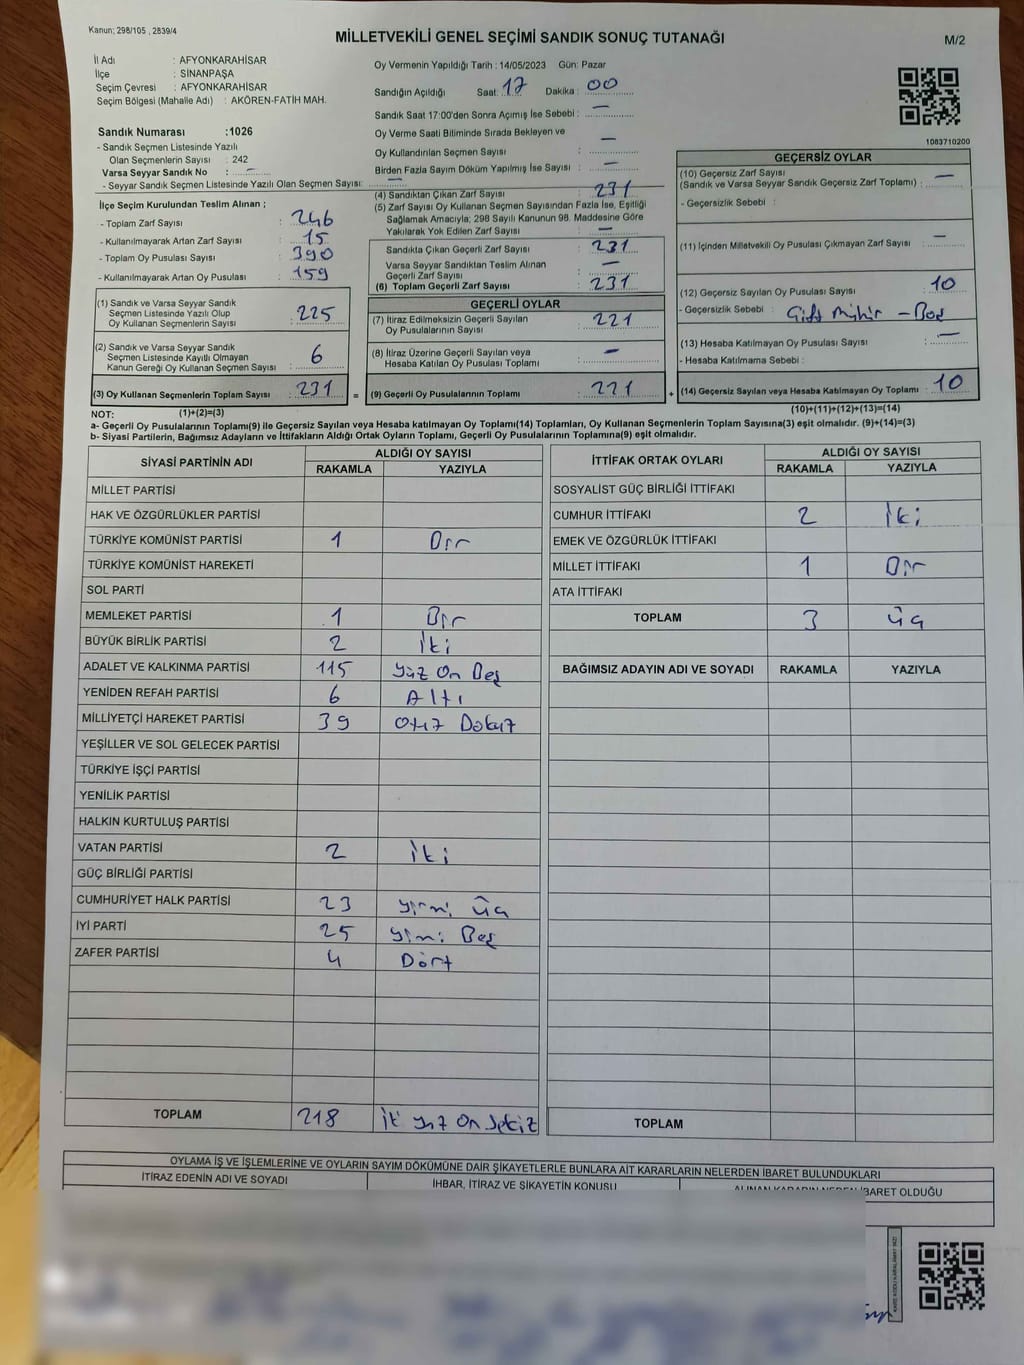 Kanun; 298/105 , 2839/4
MİLLETVEKİLİ GENEL SEÇİMİ SANDIK SONUÇ TUTANAĞI
M/2
İl Adı : AFYONKARAHİSAR
İlçe : SİNANPAŞA
Seçim Çevresi : AFYONKARAHİSAR
Seçim Bölgesi (Mahalle Adı) : AKÖREN-FATİH MAH.
Oy Vermenin Yapıldığı Tarih : 14/05/2023 Gün: Pazar
Sandığın Açıldığı Saat: 17 Dakika : 00
Sandık Saat 17:00'den Sonra Açımış İse Sebebi : —
Oy Verme Saati Bitiminde Sırada Bekleyen ve
Oy Kullandırılan Seçmen Sayısı : —
Birden Fazla Sayım Döküm Yapılmış İse Sayısı : —
Sandık Numarası :1026
- Sandık Seçmen Listesinde Yazılı
Olan Seçmenlerin Sayısı : 242
Varsa Seyyar Sandık No : —
- Seyyar Sandık Seçmen Listesinde Yazılı Olan Seçmen Sayısı: —
1083710200
İlçe Seçim Kurulundan Teslim Alınan ;
- Toplam Zarf Sayısı : 246
- Kullanılmayarak Artan Zarf Sayısı : 15
- Toplam Oy Pusulası Sayısı : 390
- Kullanılmayarak Artan Oy Pusulası : 159
(1) Sandık ve Varsa Seyyar Sandık
Seçmen Listesinde Yazılı Olup
Oy Kullanan Seçmenlerin Sayısı : 225
(2) Sandık ve Varsa Seyyar Sandık
Seçmen Listesinde Kayıtlı Olmayan
Kanun Gereği Oy Kullanan Seçmen Sayısı : 6
(3) Oy Kullanan Seçmenlerin Toplam Sayısı : 231
(4) Sandıktan Çıkan Zarf Sayısı : 231
(5) Zarf Sayısı Oy Kullanan Seçmen Sayısından Fazla İse, Eşitliği
Sağlamak Amacıyla; 298 Sayılı Kanunun 98. Maddesine Göre
Yakılarak Yok Edilen Zarf Sayısı : —
Sandıkta Çıkan Geçerli Zarf Sayısı : 231
Varsa Seyyar Sandıktan Teslim Alınan
Geçerli Zarf Sayısı : —
(6) Toplam Geçerli Zarf Sayısı : 231
GEÇERLİ OYLAR
(7) İtiraz Edilmeksizin Geçerli Sayılan
Oy Pusulalarının Sayısı : 221
(8) İtiraz Üzerine Geçerli Sayılan veya
Hesaba Katılan Oy Pusulası Toplamı : —
= (9) Geçerli Oy Pusulalarının Toplamı : 221
GEÇERSİZ OYLAR
(10) Geçersiz Zarf Sayısı : —
(Sandık ve Varsa Seyyar Sandık Geçersiz Zarf Toplamı)
- Geçersizlik Sebebi :
(11) İçinden Milletvekili Oy Pusulası Çıkmayan Zarf Sayısı : —
(12) Geçersiz Sayılan Oy Pusulası Sayısı : 10
- Geçersizlik Sebebi : Çift Mühür – Boş
(13) Hesaba Katılmayan Oy Pusulası Sayısı : —
- Hesaba Katılmama Sebebi :
+ (14) Geçersiz Sayılan veya Hesaba Katılmayan Oy Toplamı : 10
NOT: (1)+(2)=(3)
(10)+(11)+(12)+(13)=(14)
a- Geçerli Oy Pusulalarının Toplamı(9) ile Geçersiz Sayılan veya Hesaba katılmayan Oy Toplamı(14) Toplamları, Oy Kullanan Seçmenlerin Toplam Sayısına(3) eşit olmalıdır. (9)+(14)=(3)
b- Siyasi Partilerin, Bağımsız Adayların ve İttifakların Aldığı Ortak Oyların Toplamı, Geçerli Oy Pusulalarının Toplamına(9) eşit olmalıdır.
SİYASİ PARTİNİN ADI ALDIĞI OY SAYISI
RAKAMLA YAZIYLA
MİLLET PARTİSİ
HAK VE ÖZGÜRLÜKLER PARTİSİ
TÜRKİYE KOMÜNİST PARTİSİ 1 Bir
TÜRKİYE KOMÜNİST HAREKETİ
SOL PARTİ
MEMLEKET PARTİSİ 1 Bir
BÜYÜK BİRLİK PARTİSİ 2 İki
ADALET VE KALKINMA PARTİSİ 115 Yüz On Beş
YENİDEN REFAH PARTİSİ 6 Altı
MİLLİYETÇİ HAREKET PARTİSİ 39 Otuz Dokuz
YEŞİLLER VE SOL GELECEK PARTİSİ
TÜRKİYE İŞÇİ PARTİSİ
YENİLİK PARTİSİ
HALKIN KURTULUŞ PARTİSİ
VATAN PARTİSİ 2 İki
GÜÇ BİRLİĞİ PARTİSİ
CUMHURİYET HALK PARTİSİ 23 Yirmi Üç
İYİ PARTİ 25 Yirmi Beş
ZAFER PARTİSİ 4 Dört
TOPLAM 218 İki Yüz On Sekiz
İTTİFAK ORTAK OYLARI ALDIĞI OY SAYISI
RAKAMLA YAZIYLA
SOSYALİST GÜÇ BİRLİĞİ İTTİFAKI
CUMHUR İTTİFAKI 2 İki
EMEK VE ÖZGÜRLÜK İTTİFAKI
MİLLET İTTİFAKI 1 Bir
ATA İTTİFAKI
TOPLAM 3 Üç
BAĞIMSIZ ADAYIN ADI VE SOYADI RAKAMLA YAZIYLA
TOPLAM
OYLAMA İŞ VE İŞLEMLERİNE VE OYLARIN SAYIM DÖKÜMÜNE DAİR ŞİKAYETLERLE BUNLARA AİT KARARLARIN NELERDEN İBARET BULUNDUKLARI
İTİRAZ EDENİN ADI VE SOYADI İHBAR, İTİRAZ VE ŞİKAYETİN KONUSU ALINAN KARARIN NEDEN İBARET OLDUĞU